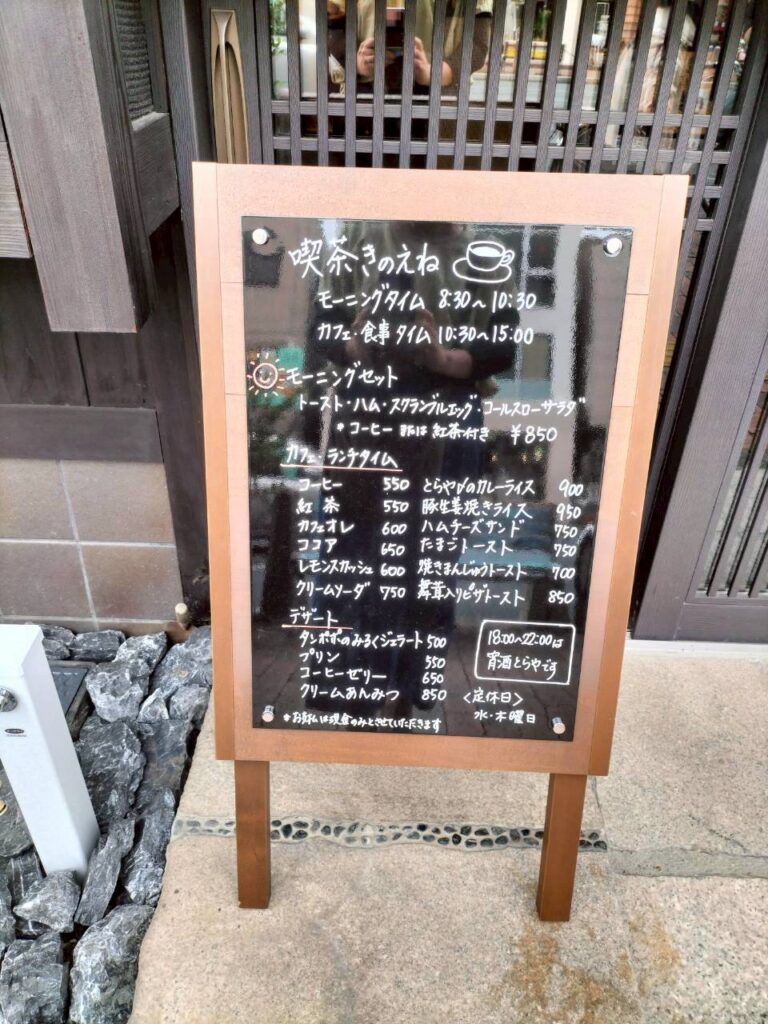 喫茶きのえね
モーニングタイム 8:30～10:30
カフェ・食事タイム 10:30～15:00
モーニングセット
トースト・ハム・スクランブルエッグ・コールスローサラダ
*コーヒーまたは紅茶付き ￥850
カフェ・ランチタイム
コーヒー 550
紅茶 550
カフェオレ 600
ココア 650
レモンスカッシュ 600
クリームソーダ 750
とらやのカレーライス 900
豚生姜焼きライス 950
ハムチーズサンド 750
たまごトースト 750
焼きまんじゅうトースト 700
舞茸入りピザトースト 850
デザート
タンポポのみるくジェラート 500
プリン 550
コーヒーゼリー 650
クリームあんみつ 850
*お支払は現金のみとさせていただきます
18:00～22:00は
宵酒とらやです
〈定休日〉
水・木曜日